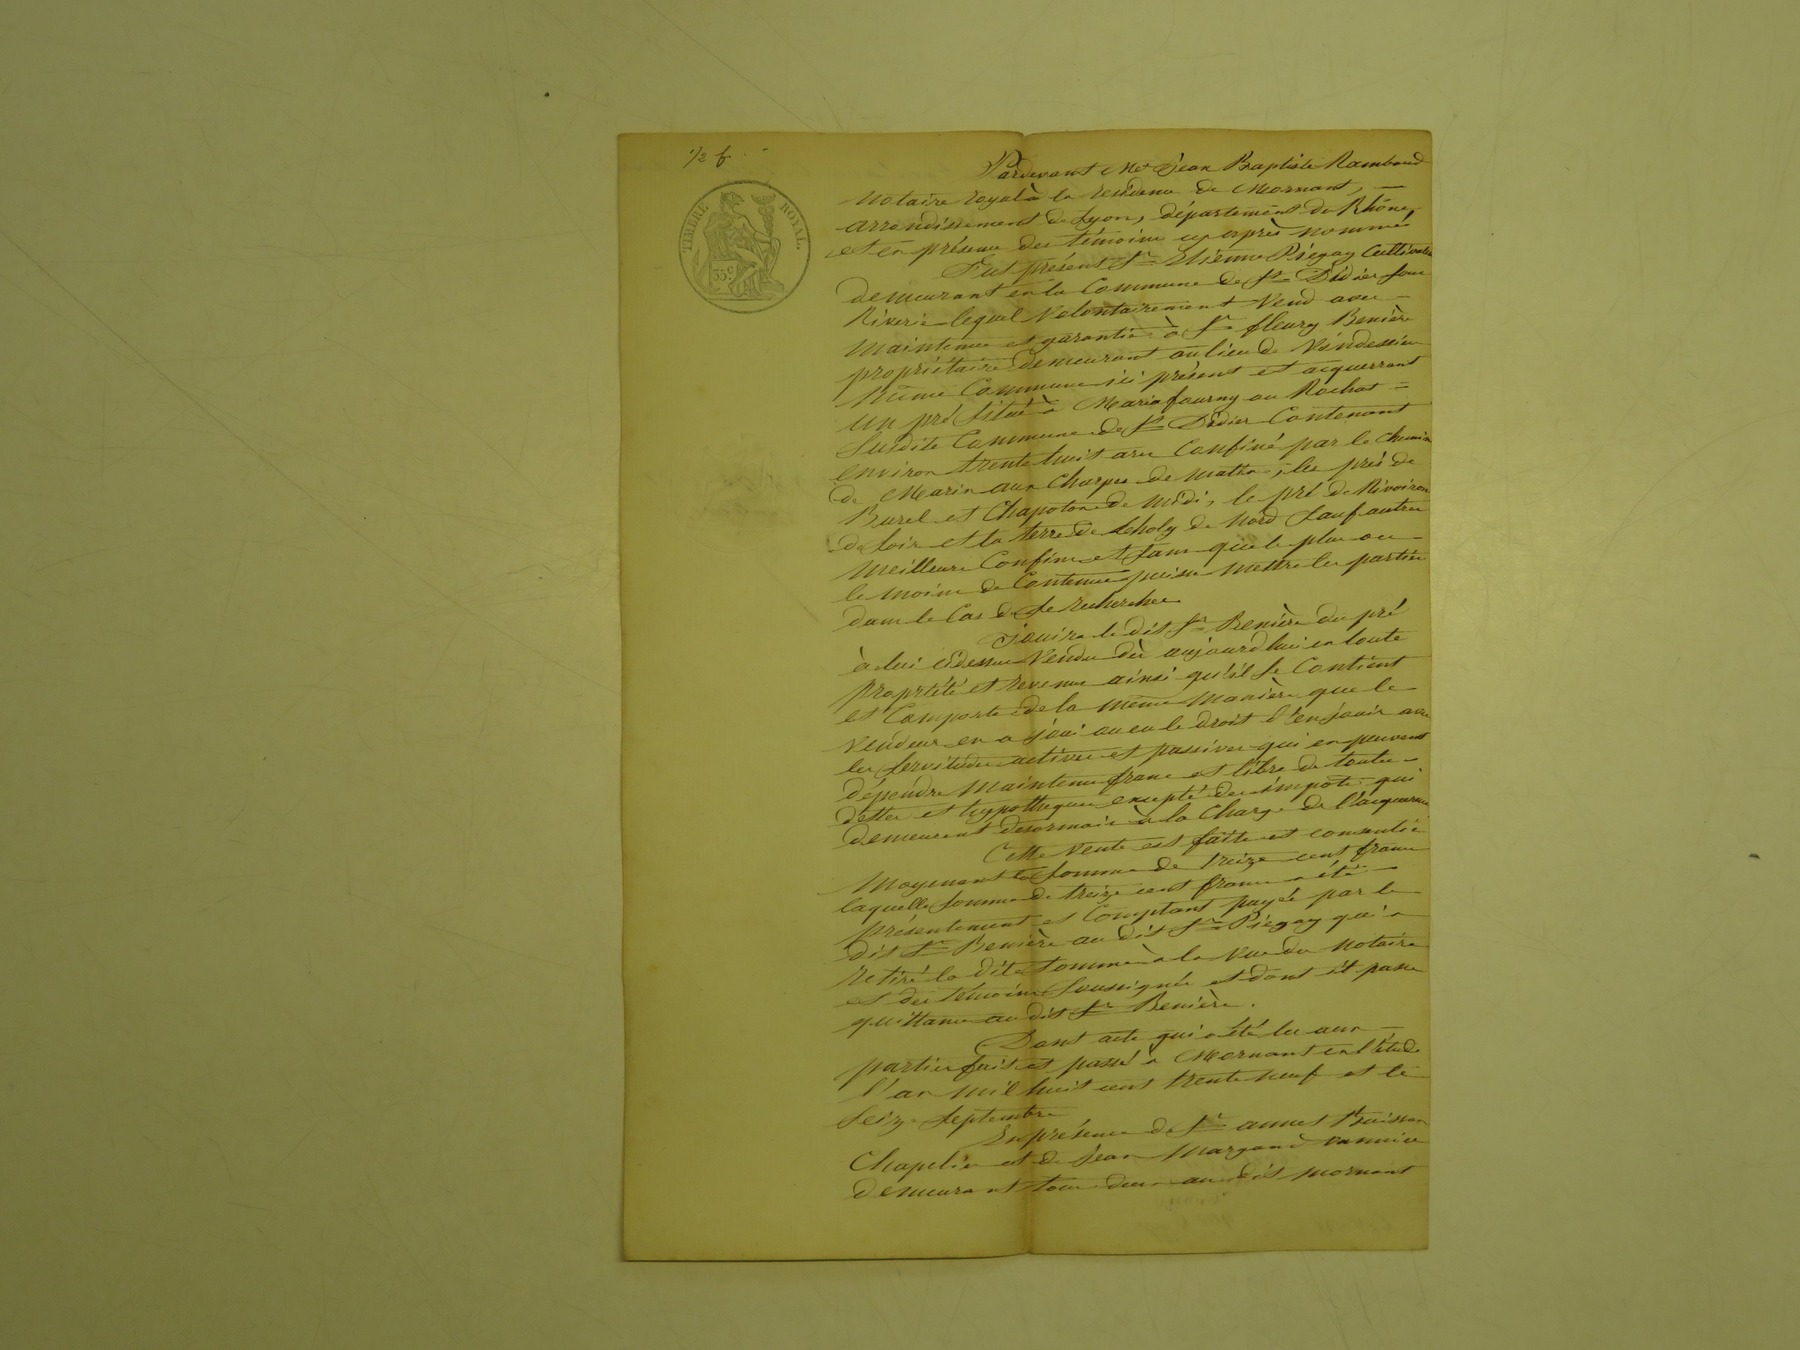 1/2 f
TIMBRE ROYAL.
35 c.
Pardevant Me Jean Baptiste Rambaud
Notaire royal à la residence de Mornant,
arrondissement de Lyon, département du Rhône,
et en présence des témoins cy après nommés
Fut présent Sr Etienne Piégay Cultivateur
demeurant en la Commune de St Didier sous
Riverie lequel Volontairement Vend avec
Maintenue et garantie à Sr fleury Benière
propriétaire demeurant au lieu de
Même Commune ici présent et acquerrant
un pré situé à au Rochat
Susdite Commune de St Didier Contenant
environ trente huit ares Confiné par le chemin
de Marin aux Charpes de matin, les prés de
Burel et Chapoton de midi, le pré de Rivoiron
de soir et la terre de de Nord Sauf autres
Meilleurs Confins et sans que le plus ou
le moins de Contenue puisse mettre les parties
dans le Cas de se rechercher
Jouira le dit Sr Benière du pré
à lui cidessus Vendu dès aujourd'hui en toute
propriété et revenus ainsi qu'il se Contient
et Comporte de la même Manière que le
Vendeur en a joui ou eu le droit d'en jouir avec
les servitudes actives et passives qui en peuvent
dépendre Maintenu franc et libre de toutes
dettes et hypotheques excepté des impots qui
demeurent desormais à la Charge de l'acquereur
Cette Vente est faite et consentie
Moyennant la somme de treize cent francs
laquelle somme de treize cent francs a été
présentement et Comptant payée par le
dit Sr Benière au dit Sr Piégay qui a
retiré la dite somme à la Vue du Notaire
et des témoins soussignés et dont il passe
quittance au dit Sr Benière.
Dont acte qui a été lu aux
parties fait et passé à Mornant en l'étude
l'an mil huit cent trente neuf et le
seize septembre
En présence de Sr annet Buisson
Chapelier et de Jean
demeurant tous deux au dit mornant